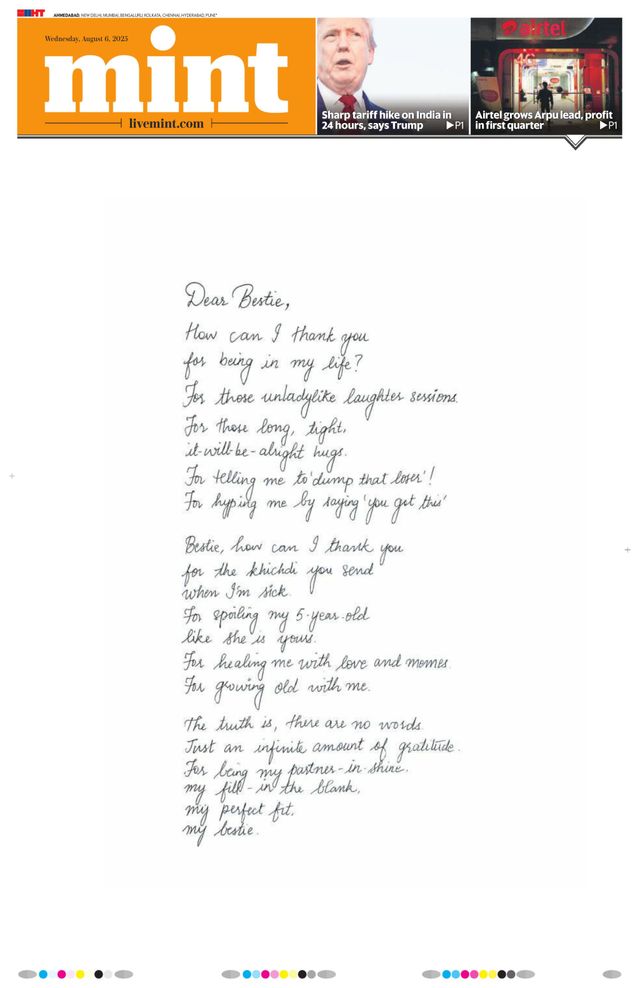 HT
AHMEDABAD, NEW DELHI, MUMBAI, BENGALURU, KOLKATA, CHENNAI, HYDERABAD, PUNE*
Wednesday, August 6, 2025
mint
livemint.com
Sharp tariff hike on India in
24 hours, says Trump ▶P1
airtel
Airtel grows Arpu lead, profit
in first quarter ▶P1
Dear Bestie,
How can I thank you
for being in my life?
For those unladylike laughter sessions.
For those long, tight,
it-will-be-alright hugs.
For telling me to 'dump that loser'!
For hyping me by saying 'you got this'
Bestie, how can I thank you
for the khichdi you send
when I'm sick.
For spoiling my 5-year-old
like she is yours.
For healing me with love and momos.
For growing old with me.
The truth is, there are no words.
Just an infinite amount of gratitude.
For being my partner-in-shine.
my fill-in the blank,
my perfect fit,
my bestie.